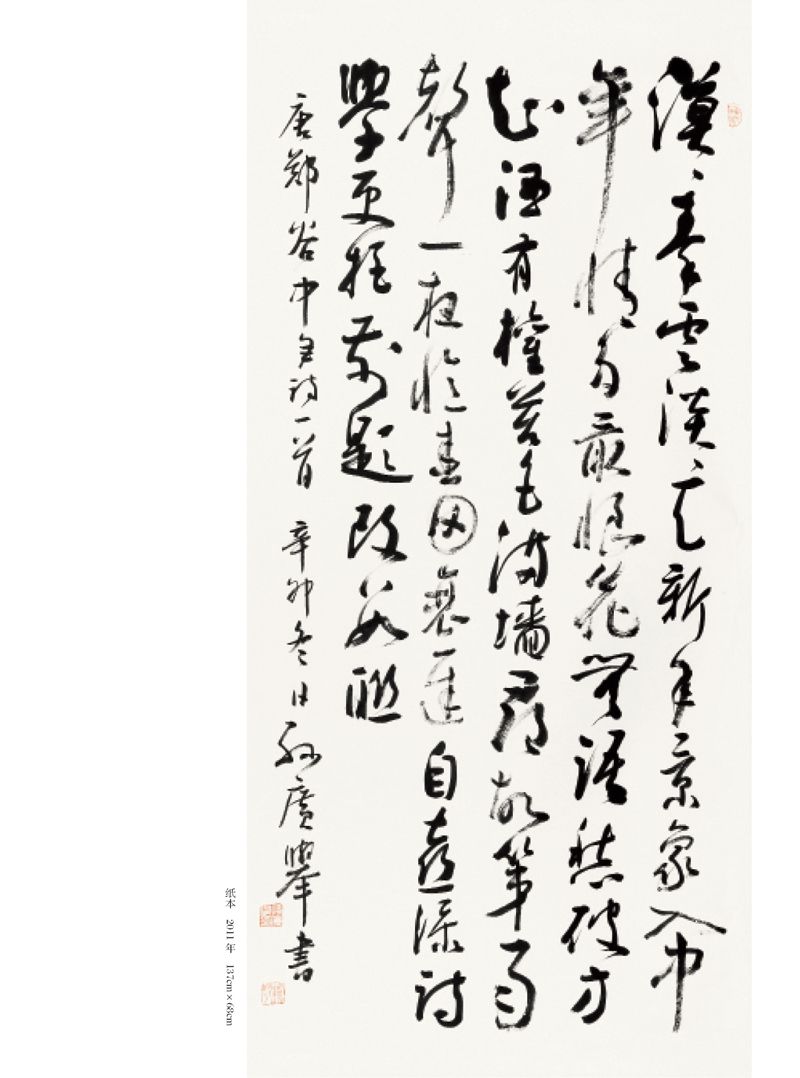 漠〻秦雲淡〻天新年景象入中
年情多最恨花無語愁破方
知酒有權苔色滿墻尋故第雨
聲一夜憶春田衰遲自喜添詩
學更把前題改數聯
唐鄭谷中年詩一首 辛卯冬日孫廣舉書
纸本 2011年 137cm×68cm